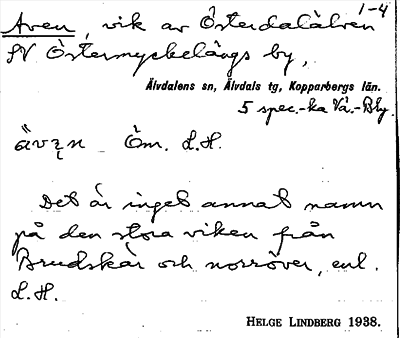 1-4
Aven, vik av Österdalälven
SV Östermyckelängs by,
Älvdalens sn, Älvdals tg, Kopparbergs län.
5 spec.-ka Vä.-Bby.
Öm. L.H.
Det är inget annat namn
på den stora viken från
Brudskär och norröver, enl.
L.H.
HELGE LINDBERG 1938.